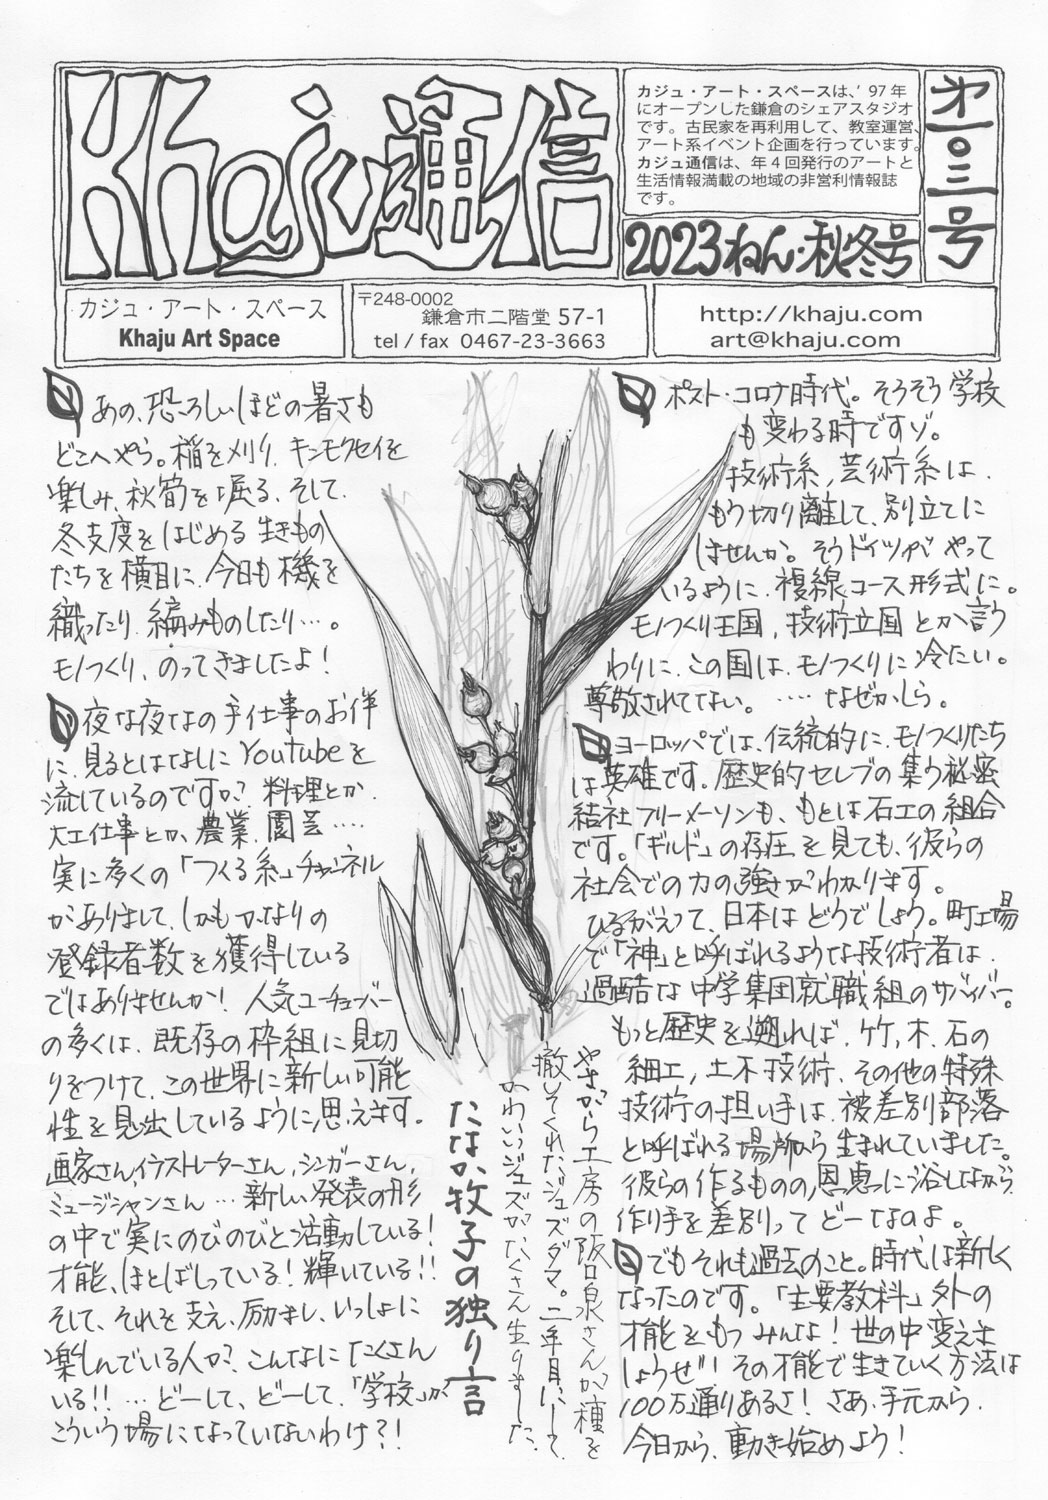 Khaju通信
カジュ・アート・スペースは、'97年
にオープンした鎌倉のシェアスタジオ
です。古民家を再利用して、教室運営、
アート系イベント企画を行っています。
カジュ通信は、年4回発行のアートと
生活情報満載の地域の非営利情報誌
です。
2023ねん・秋冬号
才一〇三号
カジュ・アート・スペース
Khaju Art Space
〒248-0002
鎌倉市二階堂 57-1
tel / fax 0467-23-3663
http://khaju.com
art@khaju.com
あの、恐ろしいほどの暑さも
どこへやら。稲を刈り、キンモクセイを
楽しみ、秋筍を掘る、そして、
冬支度をはじめる生きもの
たちを横目に、今日も機を
織ったり、編みものしたり…。
モノつくり、のってきましたよ!
夜な夜なの手仕事のお伴
に、見るとはなしにYoutubeを
流しているのですが?料理とか、
大工仕事とか、農業、園芸‥‥
実に多くの「つくる系」チャンネル
がありまして、しかもかなりの
登録者数を獲得している
ではありませんか!人気ユーチューバー
の多くは、既存の枠組に見切
りをつけて、この世界に新しい可能
性を見出しているように思えます。
画家さん、イラストレーターさん、シンガーさん、
ミュージシャンさん…新しい発表の形
の中で実にのびのびと活動している!
才能、ほとばしっている!輝いている!!
そして、それを支え、励まし、いっしょに
楽しんでいる人が?、こんなにたくさん
いる!!…どーして、どーして、「学校」が
こういう場になっていないわけ?!
たなか牧子の独り言
やまがら工房の阪口泉さんが種を
撤してくれたジュズダマ。二年目にして、
かわいいジュズがたくさん生りました。
ポスト・コロナ時代。そろそろ学校
も変わる時ですゾ。
技術系、芸術系は、
もう切り離して、別立てに
しませんか。そうドイツがやって
いるように、複線コース形式に。
モノつくり王国、技術立国とか言う
わりに、この国は、モノつくりに冷たい。
尊敬されてない。‥‥なぜかしら。
ヨーロッパでは、伝統的に、モノつくりたち
は英雄です。歴史的セレブの集う秘密
結社フリーメーソンも、もとは石工の組合
です。「ギルド」の存在を見ても、彼らの
社会での力の強さがわかります。
ひるがえって、日本はどうでしょう。町工場
で「神」と呼ばれるような技術者は、
過酷な中学集団就職組のサバイバー。
もっと歴史を遡れば、竹、木、石の
細工、土木技術、その他の特殊
技術の担い手は、被差別部落
と呼ばれる場所から生まれていました。
彼らの作るものの、恩恵に浴しながら、
作り手を差別ってどーなのよ。
でもそれも過去のこと。時代は新しく
なったのです。「主要教科」外の
才能をもつみんな!世の中変えま
しょうぜ!その才能で生きていく方法は
100万通りあるさ!さあ、手元から、
今日から、動き始めよう!